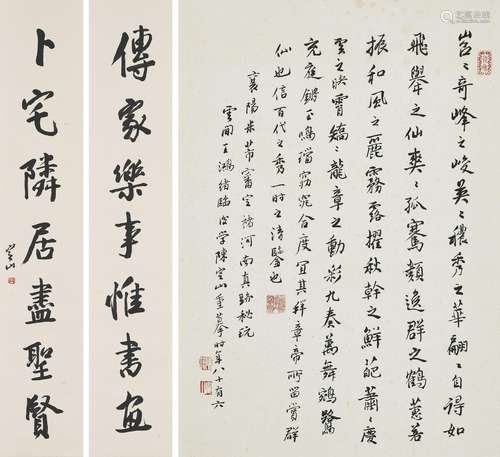 〻奇峰之峻英〻穠秀之華翩〻自得如
飛舉之仙爽〻孤騫類逸群之鶴蕙若
振和風之麗霧露擢秋幹之鮮葩蕭〻慶
雲之映霄矯〻龍章之動彩九奏萬舞鵷鷺
充庭鏘玉鳴璫窈窕合度宜其拜章帝所留賞群
仙也信百代之秀一時之清鑒也
襄陽米芾審定褚河南真跡秘玩
雲間王鴻緒臨後學陳定山重摹時年八十有六
傳家樂事惟書畫
卜宅隣居盡聖賢
定山